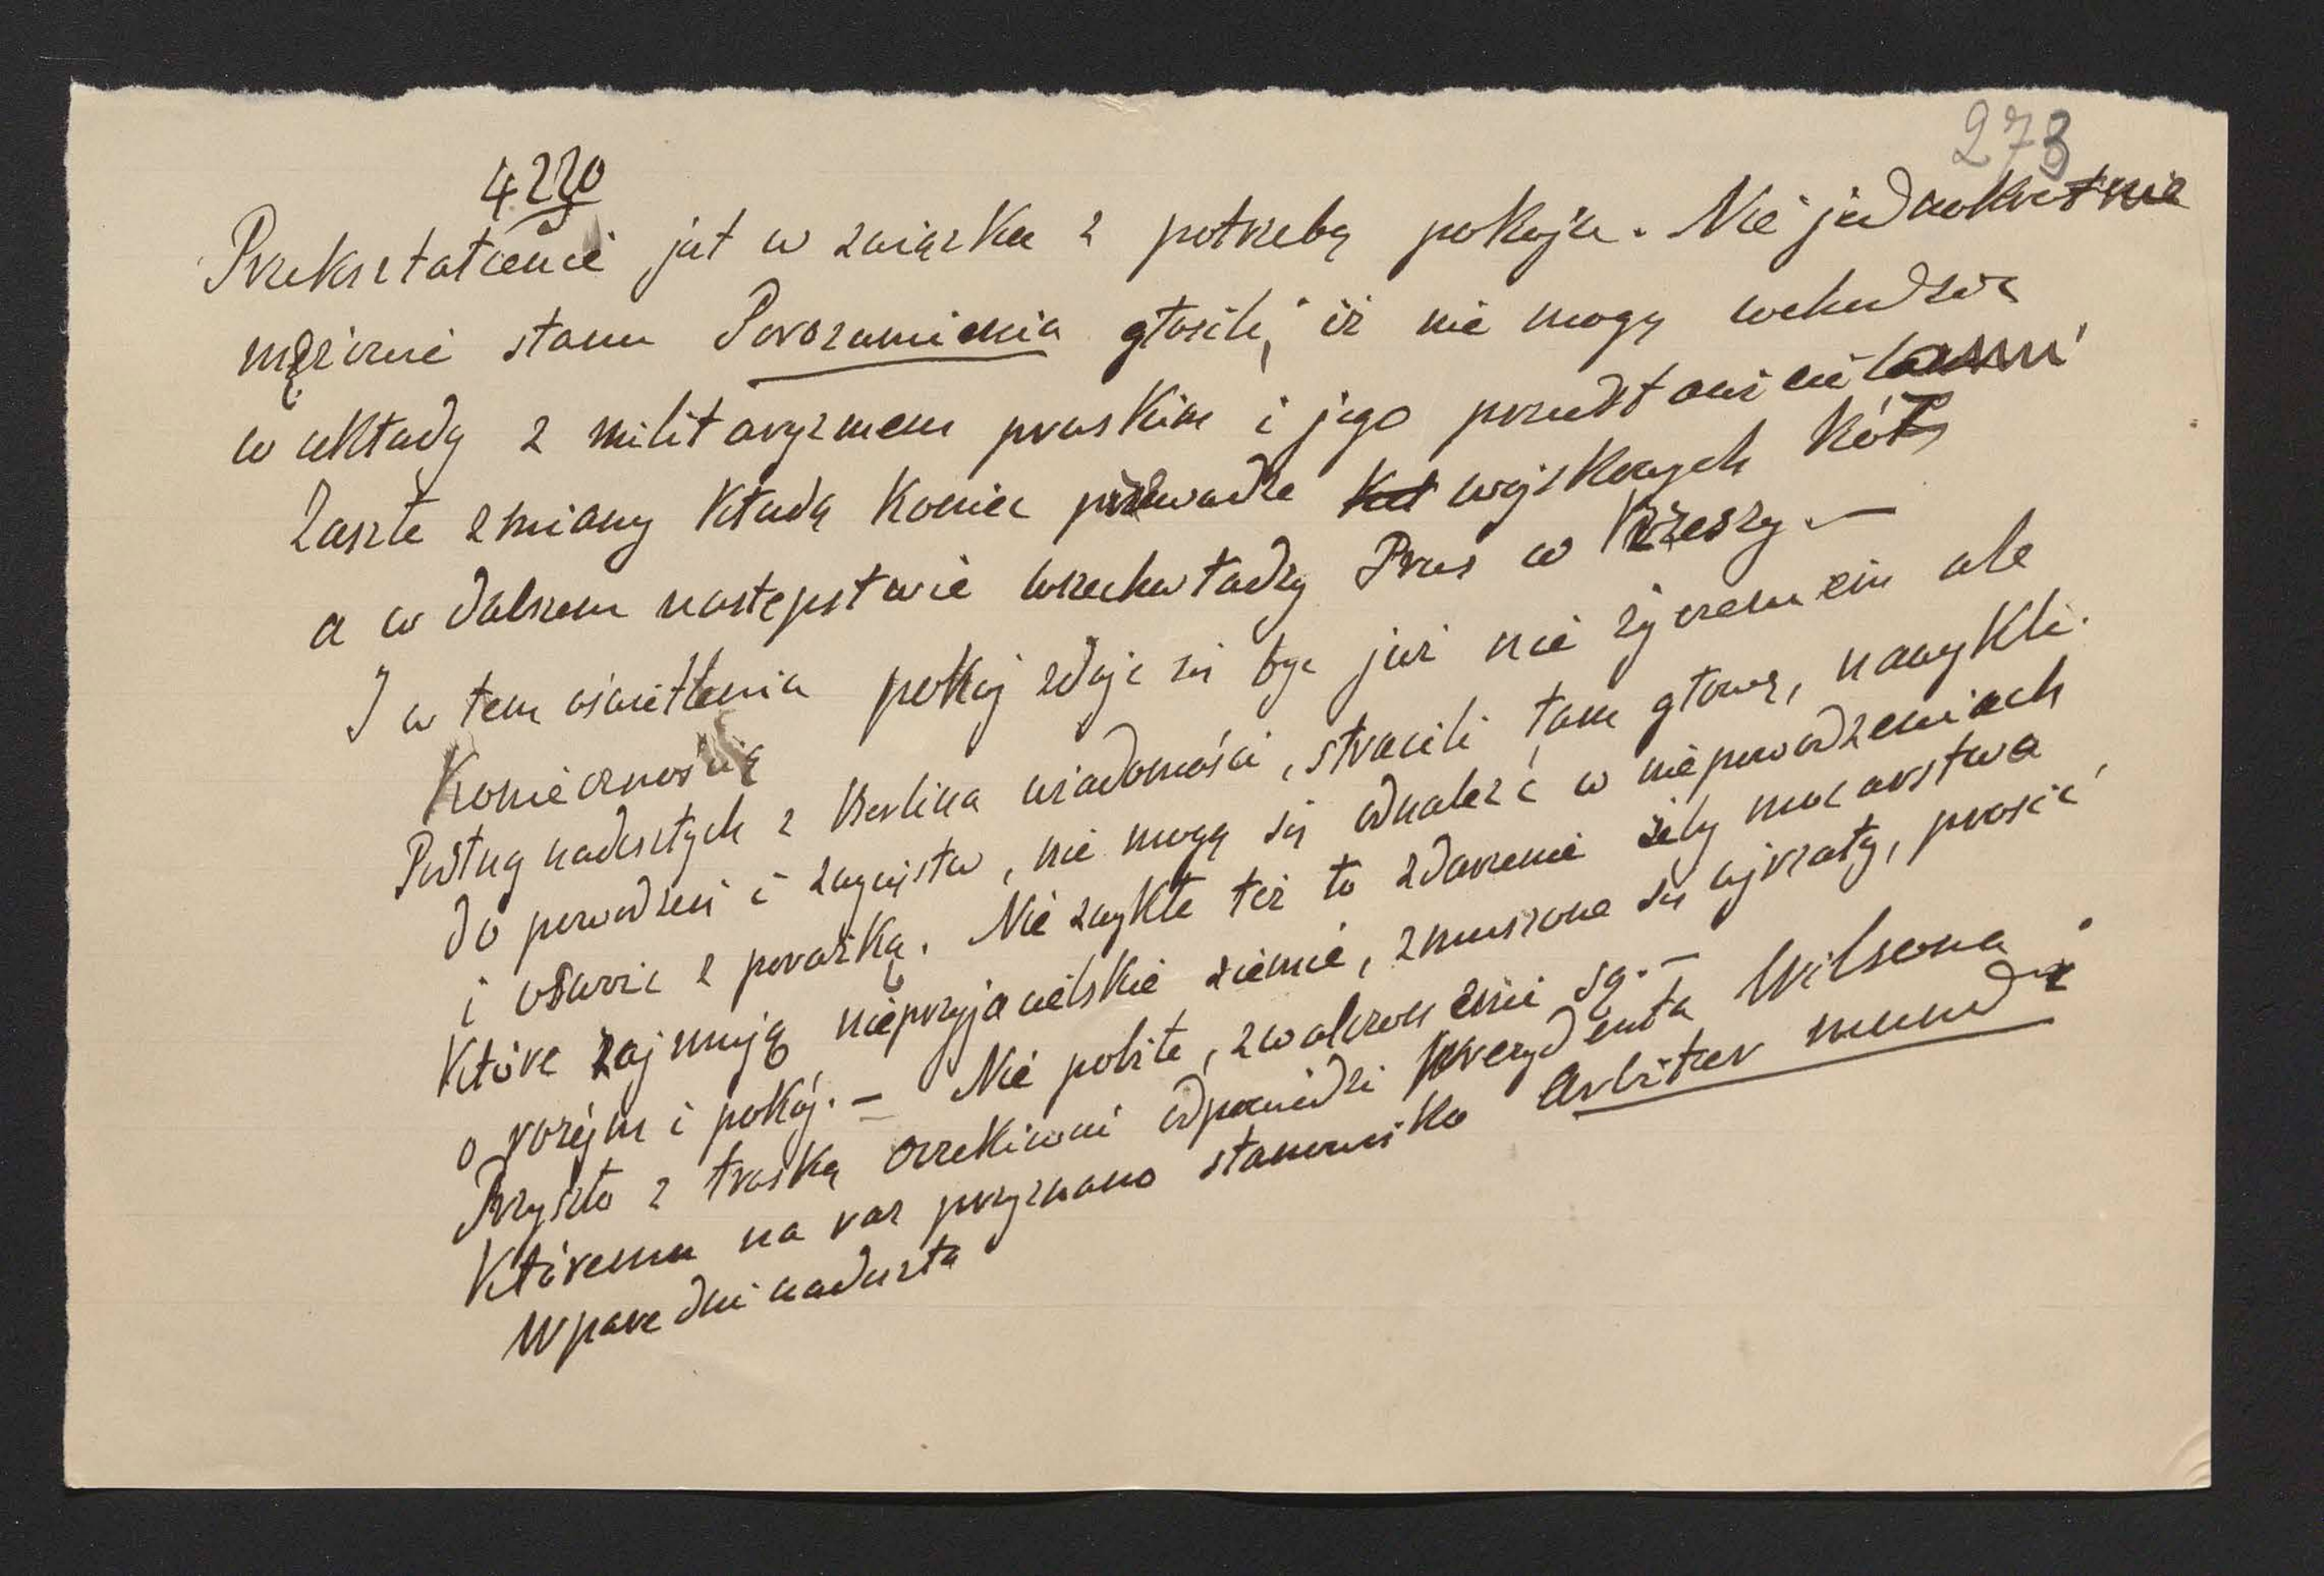 273
4220
Przekształcenie jest w związku z potrzebą pokoju. Nie jednokrotnie
mężowie stanu Porozumienia głosili, iż nie mogą wchodzić
w układy z militaryzmem pruskim i jego przedstawicielami
Zaszłe zmiany kładą koniec przewadze wojskowych kół
a w dalszem następstwie wszechwładzy Prus w Rzeszy. —
I w tem oświetleniu pokój zdaje się być już nie życzeniem ale
Koniecznością
Podług nadeszłych z Berlina wiadomości, stracili tam głowę, nawykli
do powodzeń i zwycięstw, nie mogą się odnaleźć w niepowodzeniach
i oswoić z porażką. Nie zwykłe też to zdarzenie żeby mocarstwa
Które zajmują nieprzyjacielskie ziemie, zmuszone się ujrzały, prosić
o rozejm i pokój. — Nie pobite, zwalczone są. —
Przyszło z troską oczekiwać odpowiedzi prezydenta Wilsona
Któremu na raz przyznano stanowisko Arbiter mundi
W parę dni nadeszła